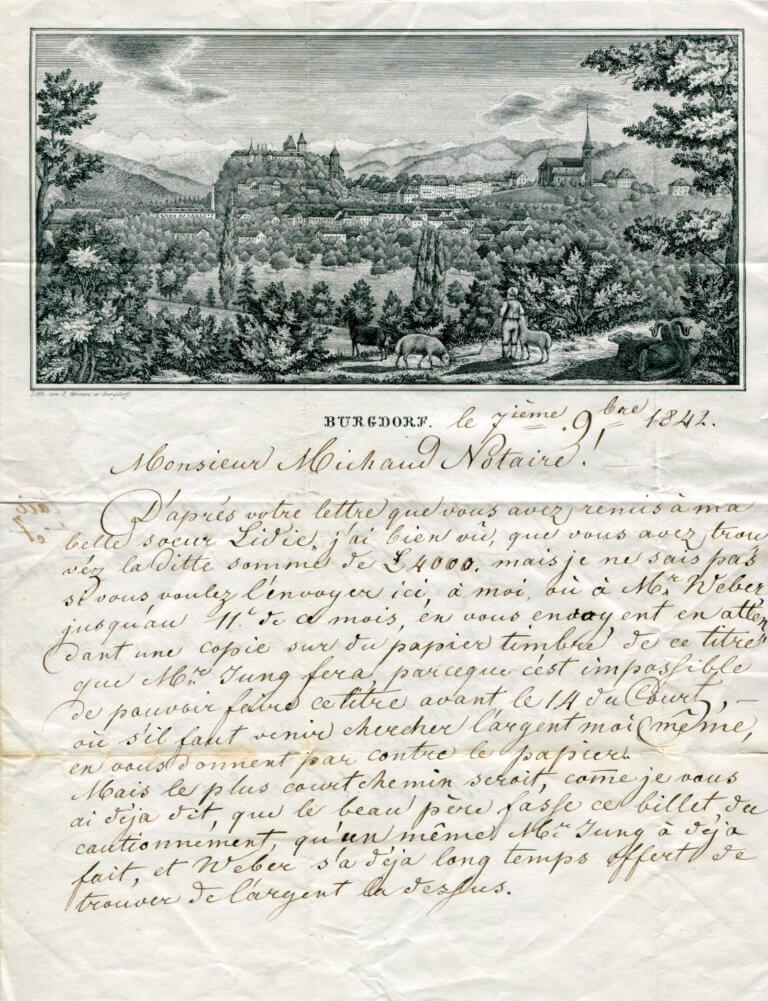 Lith. von F. Grimm in Burgdorf.
BURGDORF. le 7ième 9bre 1842.
Monsieur Michaud Notaire.
D'après votre lettre que vous avez remis à ma
belle soeur Lidie, j'ai bien vû, que vous avez trou
vez la ditte somme de L 4000. mais je ne sais pas
si vous voulez l'envoyer ici, à moi, où à Mr. Weber
jusqu'au 11t. de ce mois, en vous envoyent en atten
dant une copie sur du papier timbré, de ce titre
que Mr. Jung fera, parceque c'est impossible
de pouvoir faire ce titre avant le 14 du Court, —
où s'il faut venir chercher l'argent moi même,
en vous donnent par contre le papier.
Mais le plus court chemin seroit, come je vous
ai déja dit, que le beau père fasse ce billet du
cautionnement, qu'un même Mr. Jung à déja
fait, et Weber s'a déja long temps offert de
trouver de l'argent la dessus.